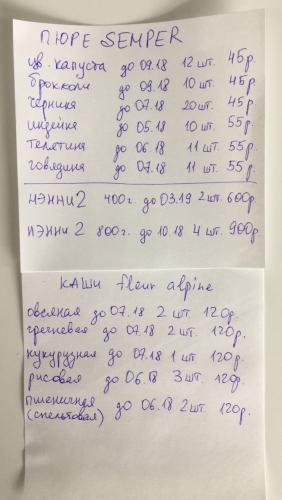 ПЮРЕ SEMPER
цв. капуста до 09.18 12 шт. 45р.
брокколи до 09.18 10 шт. 45р.
черника до 07.18 20шт. 45р.
индейка до 05.18 10 шт. 55р.
телятина до 06.18 11 шт. 55р.
говядина до 07.18 11 шт. 55р.
НЭННИ 2 400г. до 03.19 2 шт. 600р.
НЭННИ 2 800г. до 10.18 4 шт. 900р.
КАШИ fleur alpine
овсяная до 07.18 2 шт. 120р.
гречневая до 07.18 2 шт. 120р.
кукурузная до 07.18 1 шт. 120р.
рисовая до 06.18 3 шт. 120р.
пшеничная до 06.18 2 шт. 120р.
(спельтовая)